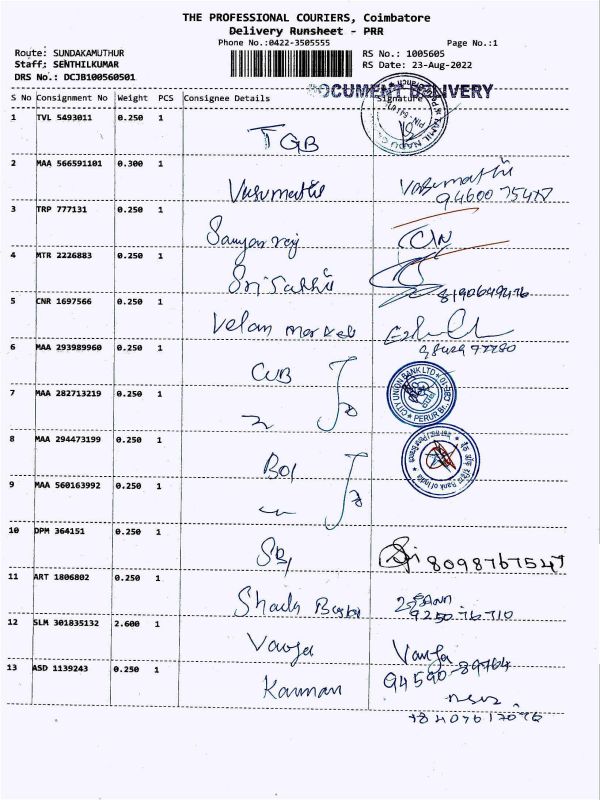 THE PROFESSIONAL COURIERS, Coimbatore
Delivery Runsheet - PRR
Phone No.:0422-3505555
Page No.:1
Route: SUNDAKAMUTHUR
RS No.: 1005605
Staff: SENTHILKUMAR
RS Date: 23-Aug-2022
DRS No.: DCJB100560501
DOCUMENT DELIVERY
S No Consignment No Weight PCS Consignee Details Signature
1 TVL 5493011 0.250 1 TGB
2 MAA 566591101 0.300 1 Vasumathi Vasumathi
9460075417
3 TRP 777131 0.250 1
4 MTR 2226883 0.250 1 Sri Sakthi
8190649476
5 CNR 1697566 0.250 1 Velan market
6 MAA 293989960 0.250 1 CUB CITY UNION BANK LTD
7 MAA 282713219 0.250 1
8 MAA 294473199 0.250 1 BOI Bank of India
9 MAA 560163992 0.250 1
10 DPM 364151 0.250 1 SBI 8098767547
11 ART 1806802 0.250 1
12 SLM 301835132 2.600 1
94590-89764
13 ASD 1139243 0.250 1 Kannan